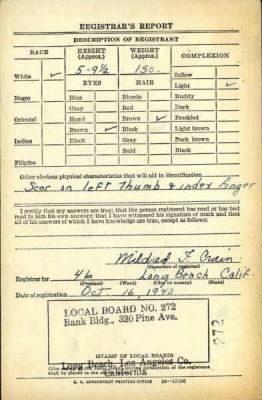 REGISTRAR'S REPORT
DESCRIPTION OF REGISTRANT
RACE HEIGHT (Approx.) WEIGHT (Approx.) COMPLEXION
5-9½ 150
White ✓ EYES HAIR Sallow
Light ✓
Negro Blue Blonde Ruddy
Gray Red Dark
Oriental Hazel Brown ✓ Freckled
Brown ✓ Black Light brown
Indian Black Gray Dark brown
Bald Black
Filipino
Other obvious physical characteristics that will aid in identification
Scar on left thumb & index finger
I certify that my answers are true; that the person registered has read or has had
read to him his own answers; that I have witnessed his signature or mark and that
all of his answers of which I have knowledge are true, except as follows:
Mildred F. Crain
(Signature of registrar)
Registrar for 46 Long Beach Calif.
(Precinct) (Ward) (City or county) (State)
Date of registration Oct. 16, 1940
LOCAL BOARD NO. 272
Bank Bldg., 320 Pine Ave.
272
STAMP OF LOCAL BOARD
Long Beach, Los Angeles Co.
California
shall be placed in the
U. S. GOVERNMENT PRINTING OFFICE 16-17105